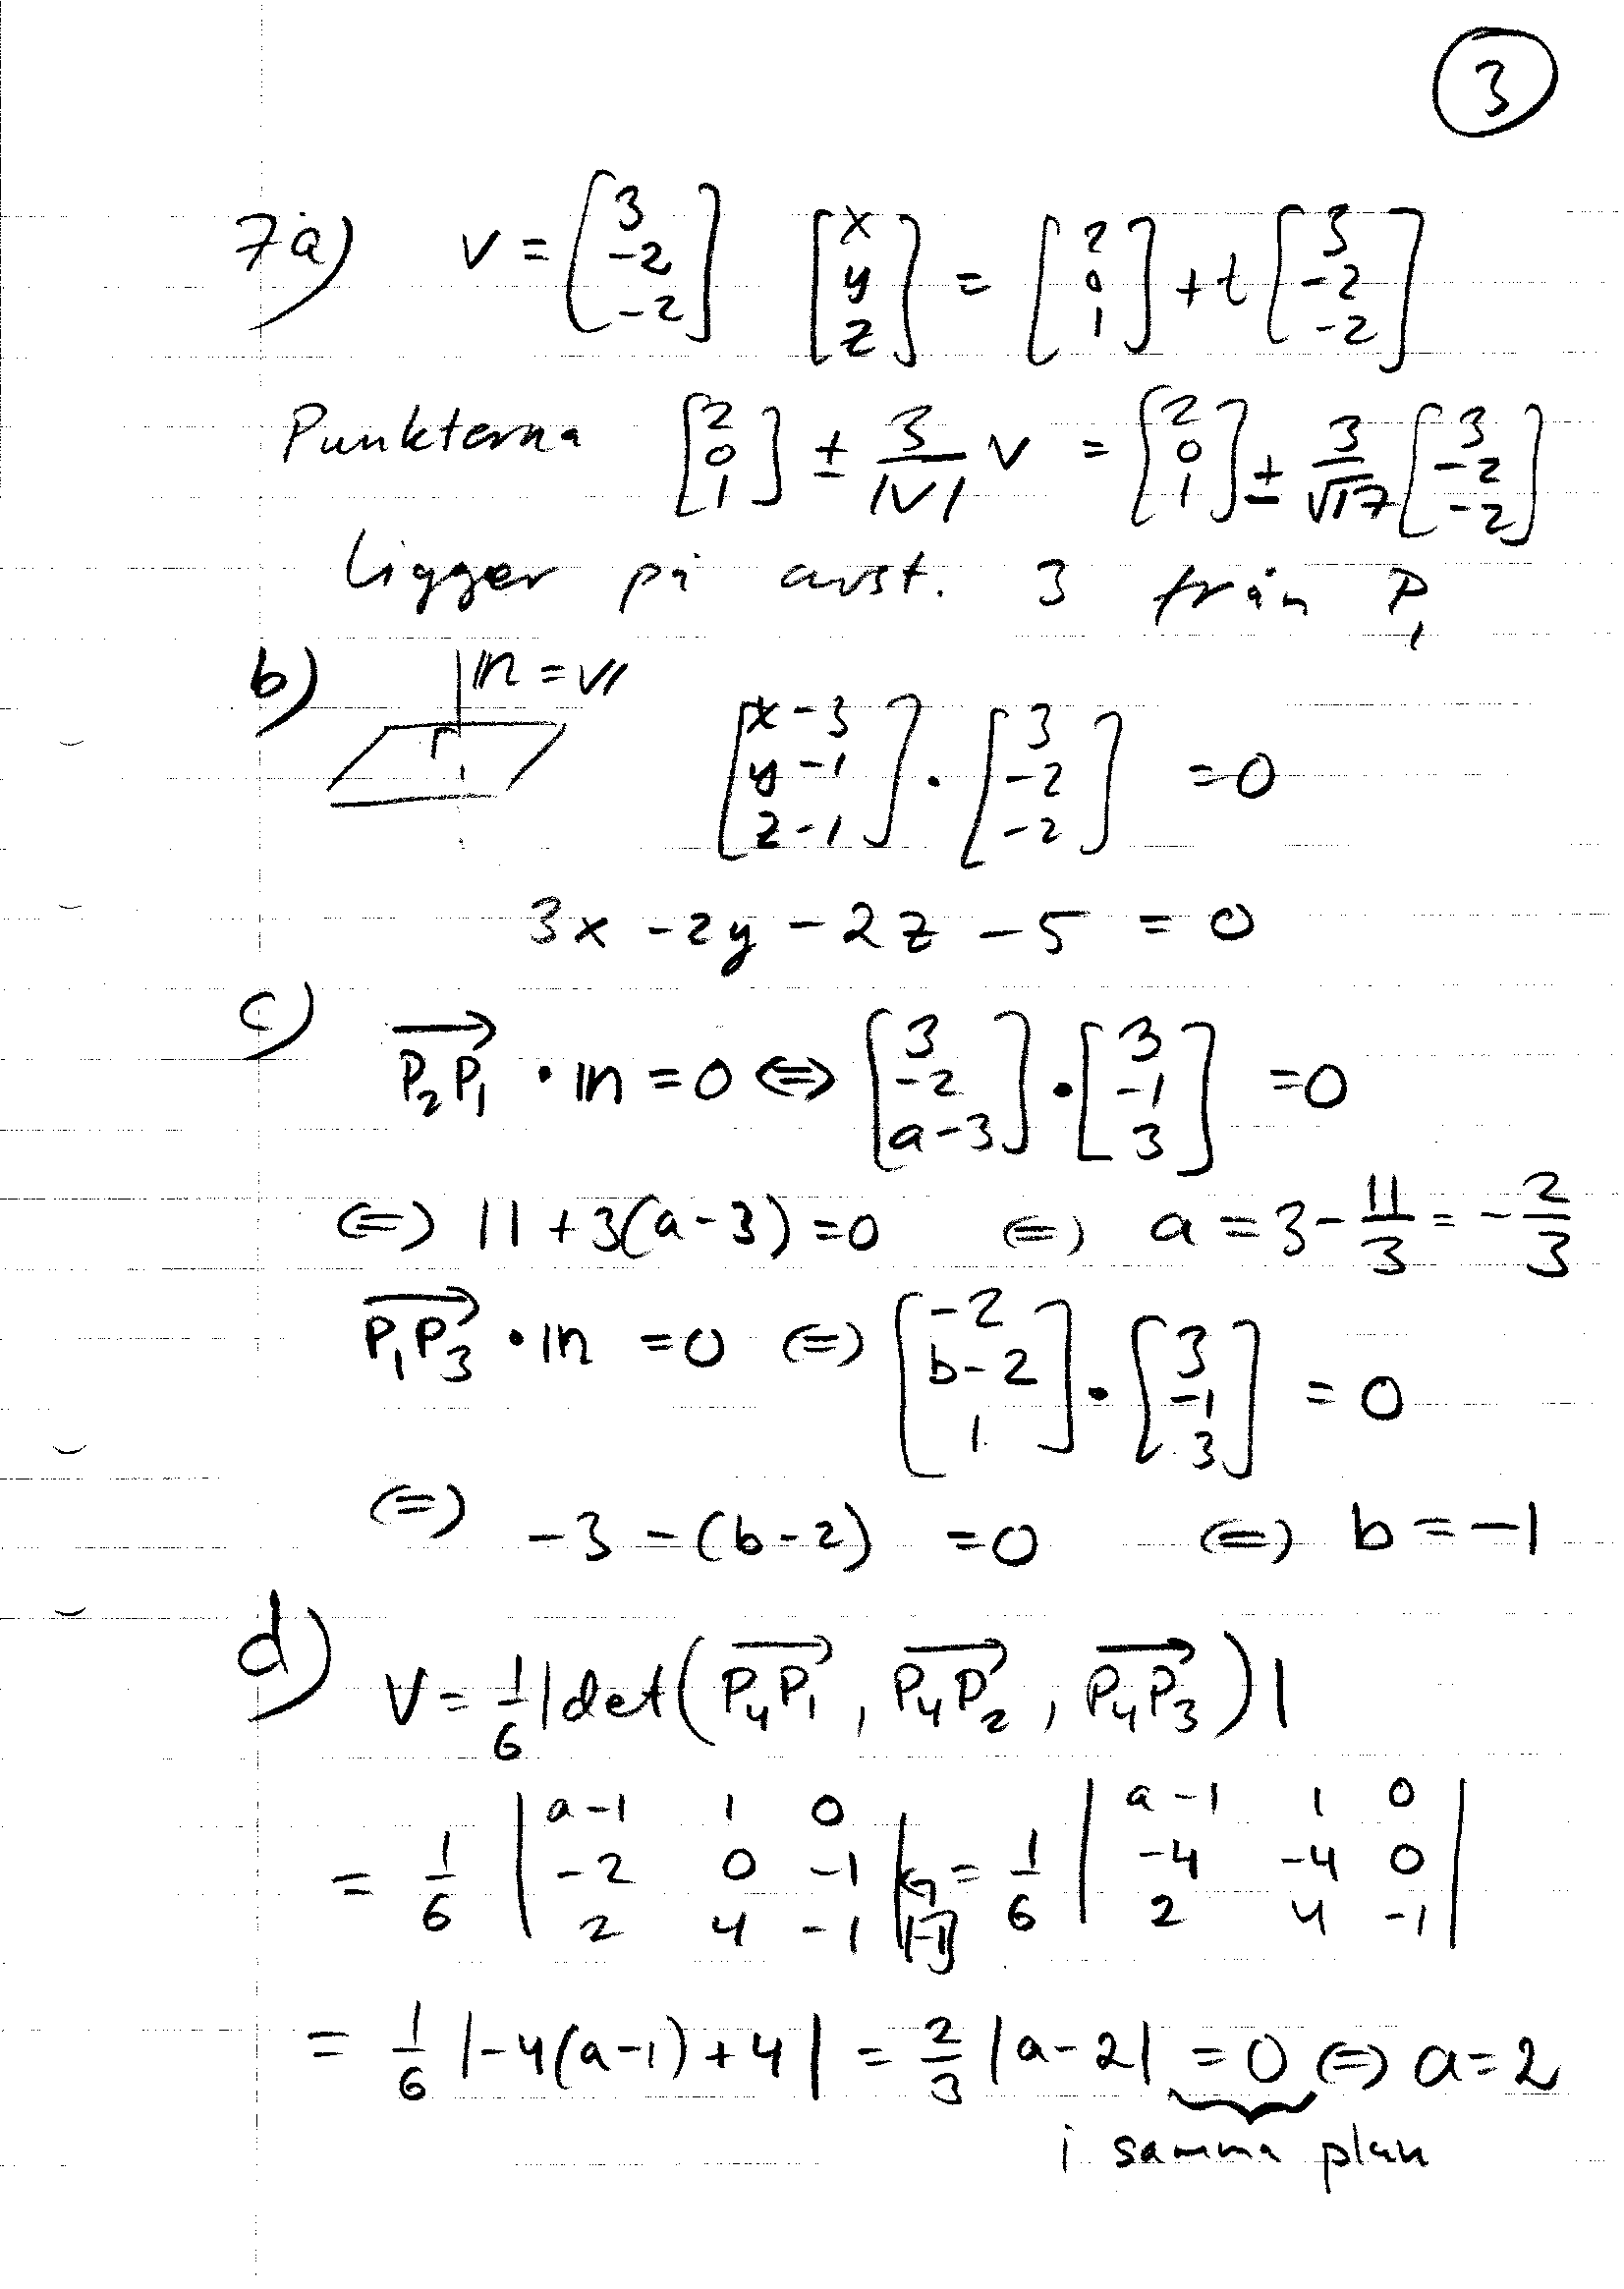 3
7a) v = [3 -2 -2] [x y z] = [2 0 1] + t [3 -2 -2]
Punkterna [2 0 1] ± 3/|v| v = [2 0 1] ± 3/√17 [3 -2 -2]
ligger på avst. 3 från P₁
b) n = v [x-3 y-1 z-1] · [3 -2 -2] = 0
3x - 2y - 2z - 5 = 0
c) P₂P₁ · n = 0 ⇔ [3 -2 a-3] · [3 -1 3] = 0
⇔ 11 + 3(a-3) = 0 ⇔ a = 3 - 11/3 = - 2/3
P₁P₃ · n = 0 ⇔ [-2 b-2 1] · [3 -1 3] = 0
⇔ -3 - (b-2) = 0 ⇔ b = -1
d) V = 1/6 |det(P₄P₁, P₄P₂, P₄P₃)|
= 1/6 |a-1 1 0 -2 0 -1 2 4 -1| = 1/6 |a-1 1 0 -4 -4 0 2 4 -1|
= 1/6 |-4(a-1)+4| = 2/3 |a-2| = 0 ⇔ a = 2
i samma plan